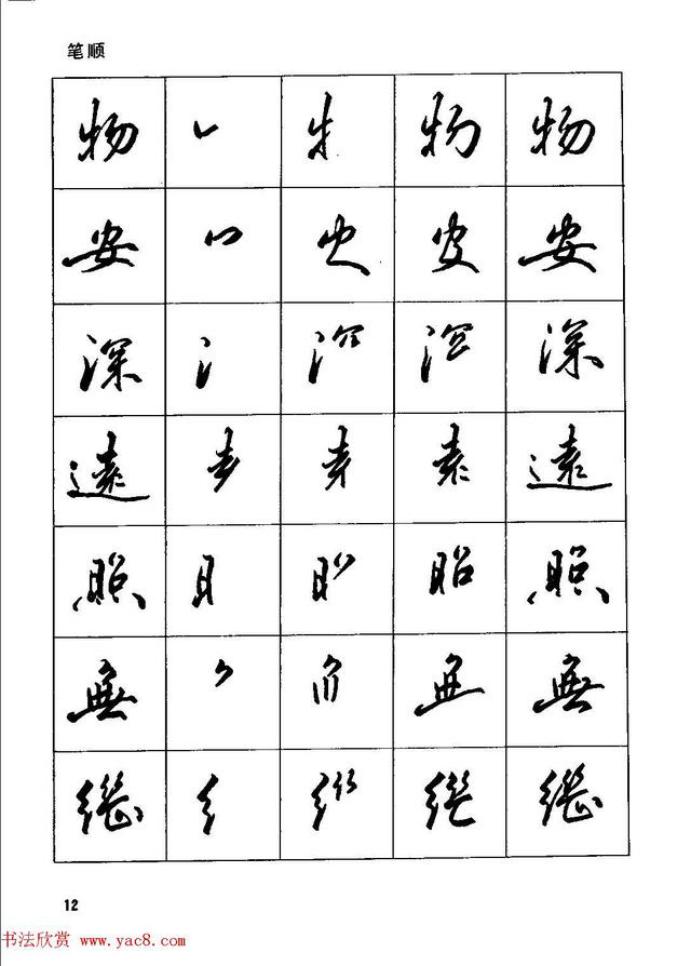 笔顺
物 物 物
安 安
深 深
遠 遠
照 昭 照
無 無
繼 繼
12
书法欣赏 www.yac8.com